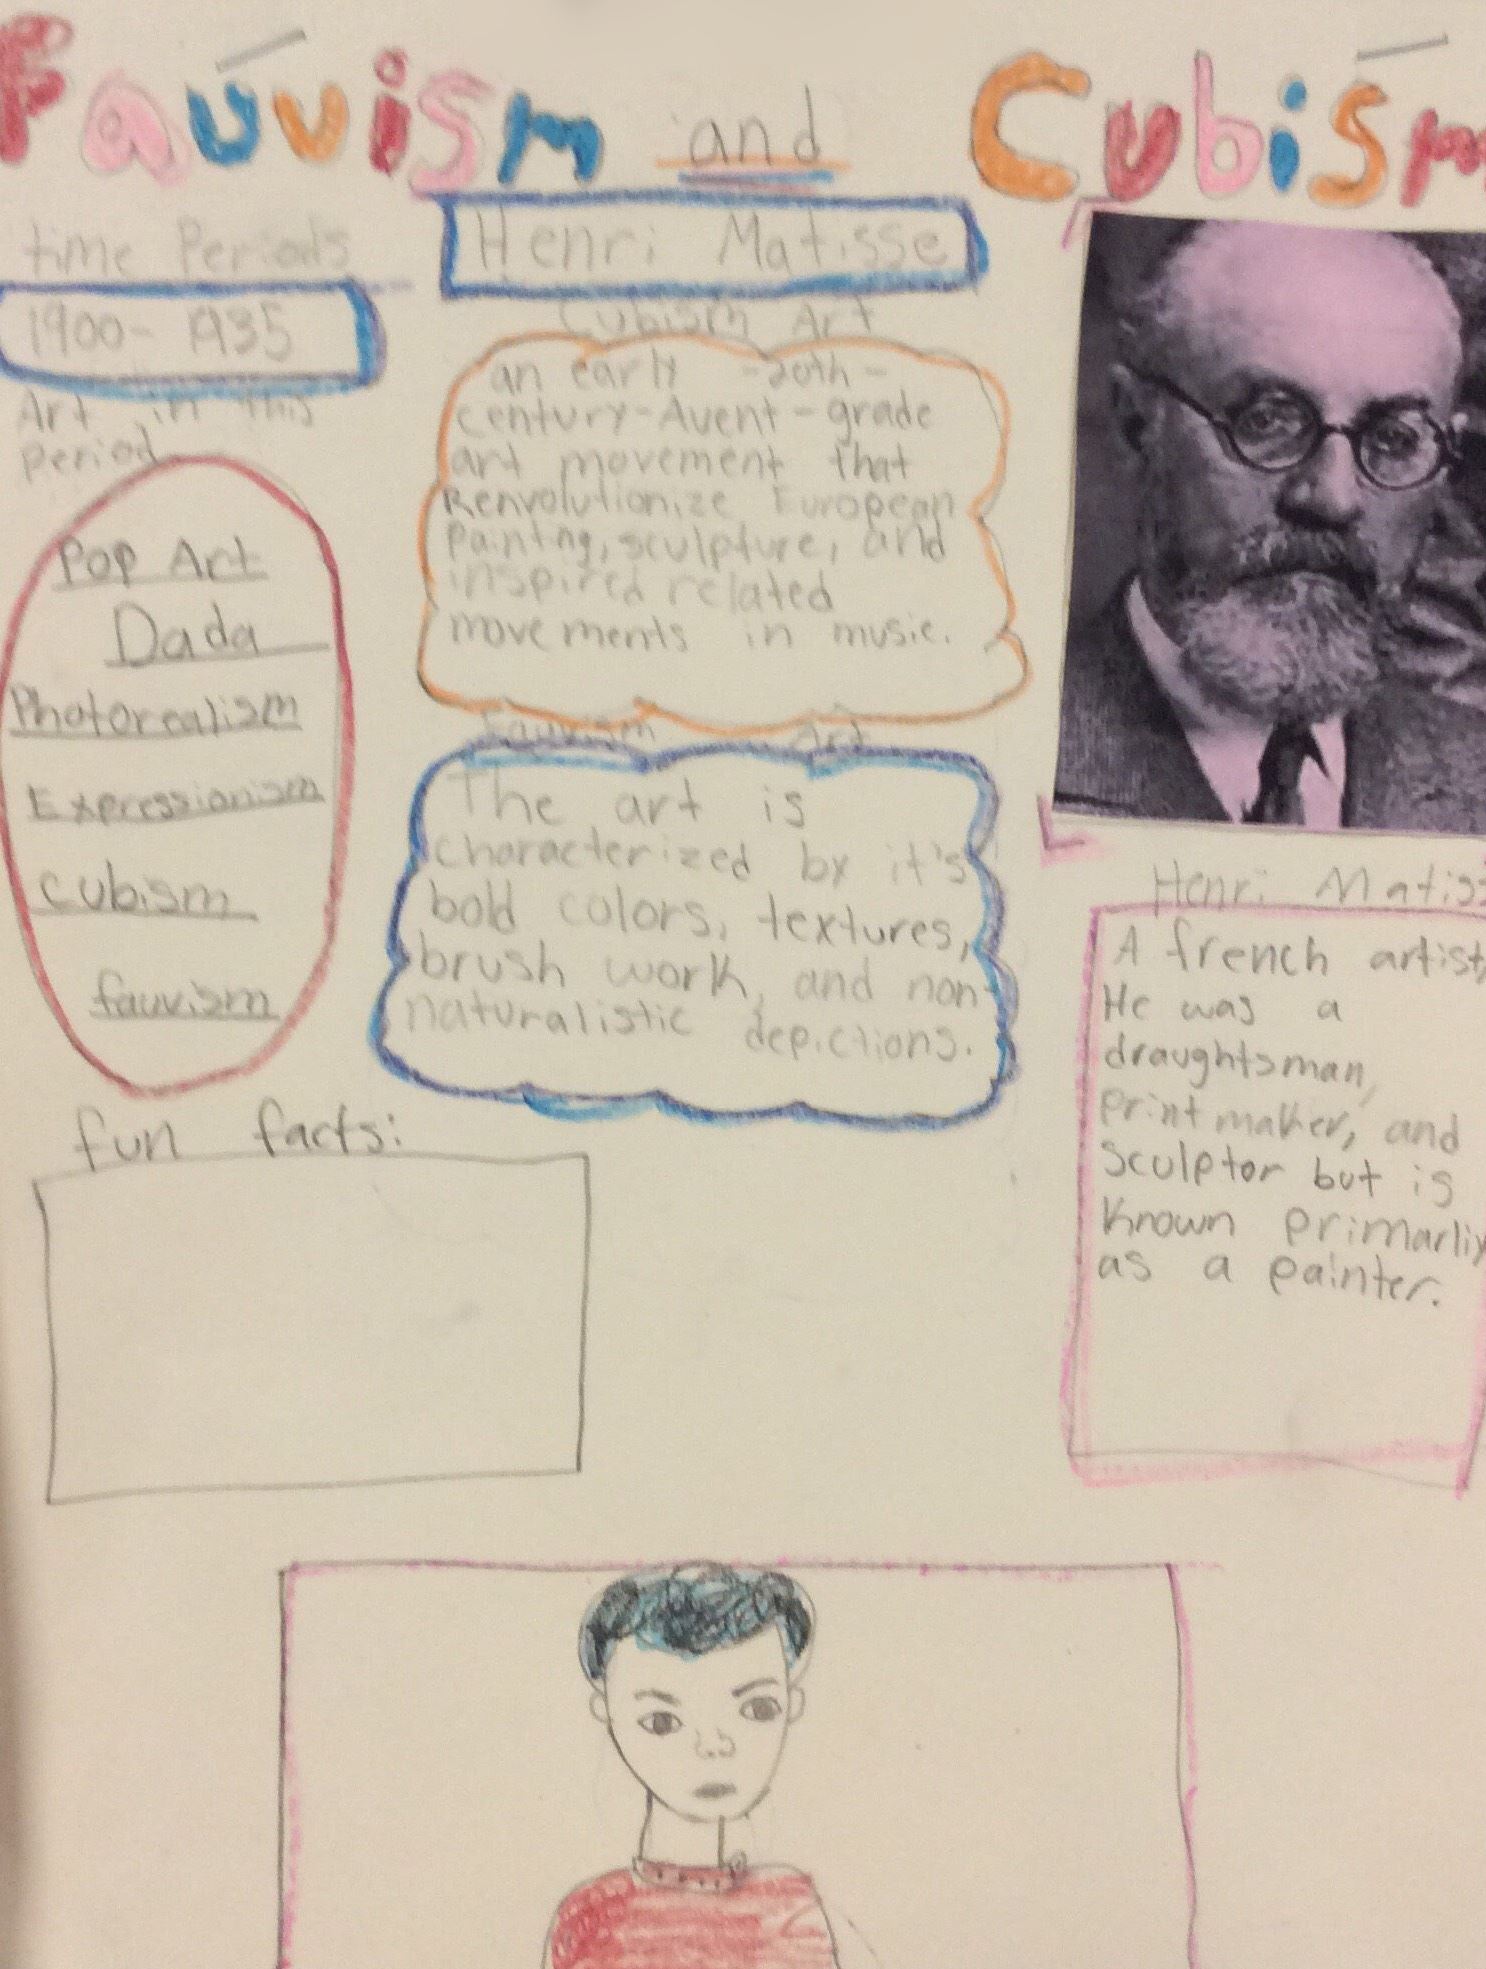 Fauvism and Cubism
time Periods
1900-1935
Art in this
period
Pop Art
Dada
Photorealism
Expressionism
Cubism
fauvism
fun facts:
Henri Matisse
Cubism Art
an early -20th-
century-Avent-grade
art movement that
Renvolutionize European
Painting, sculpture, and
inspired related
movements in music.
Fauvism Art
The art is
characterized by it's
bold colors, textures,
brush work, and non-
naturalistic depictions.
Henri Matiss
A french artist,
He was a
draughtsman,
printmaker, and
Sculptor but is
Known primarliy
as a painter.